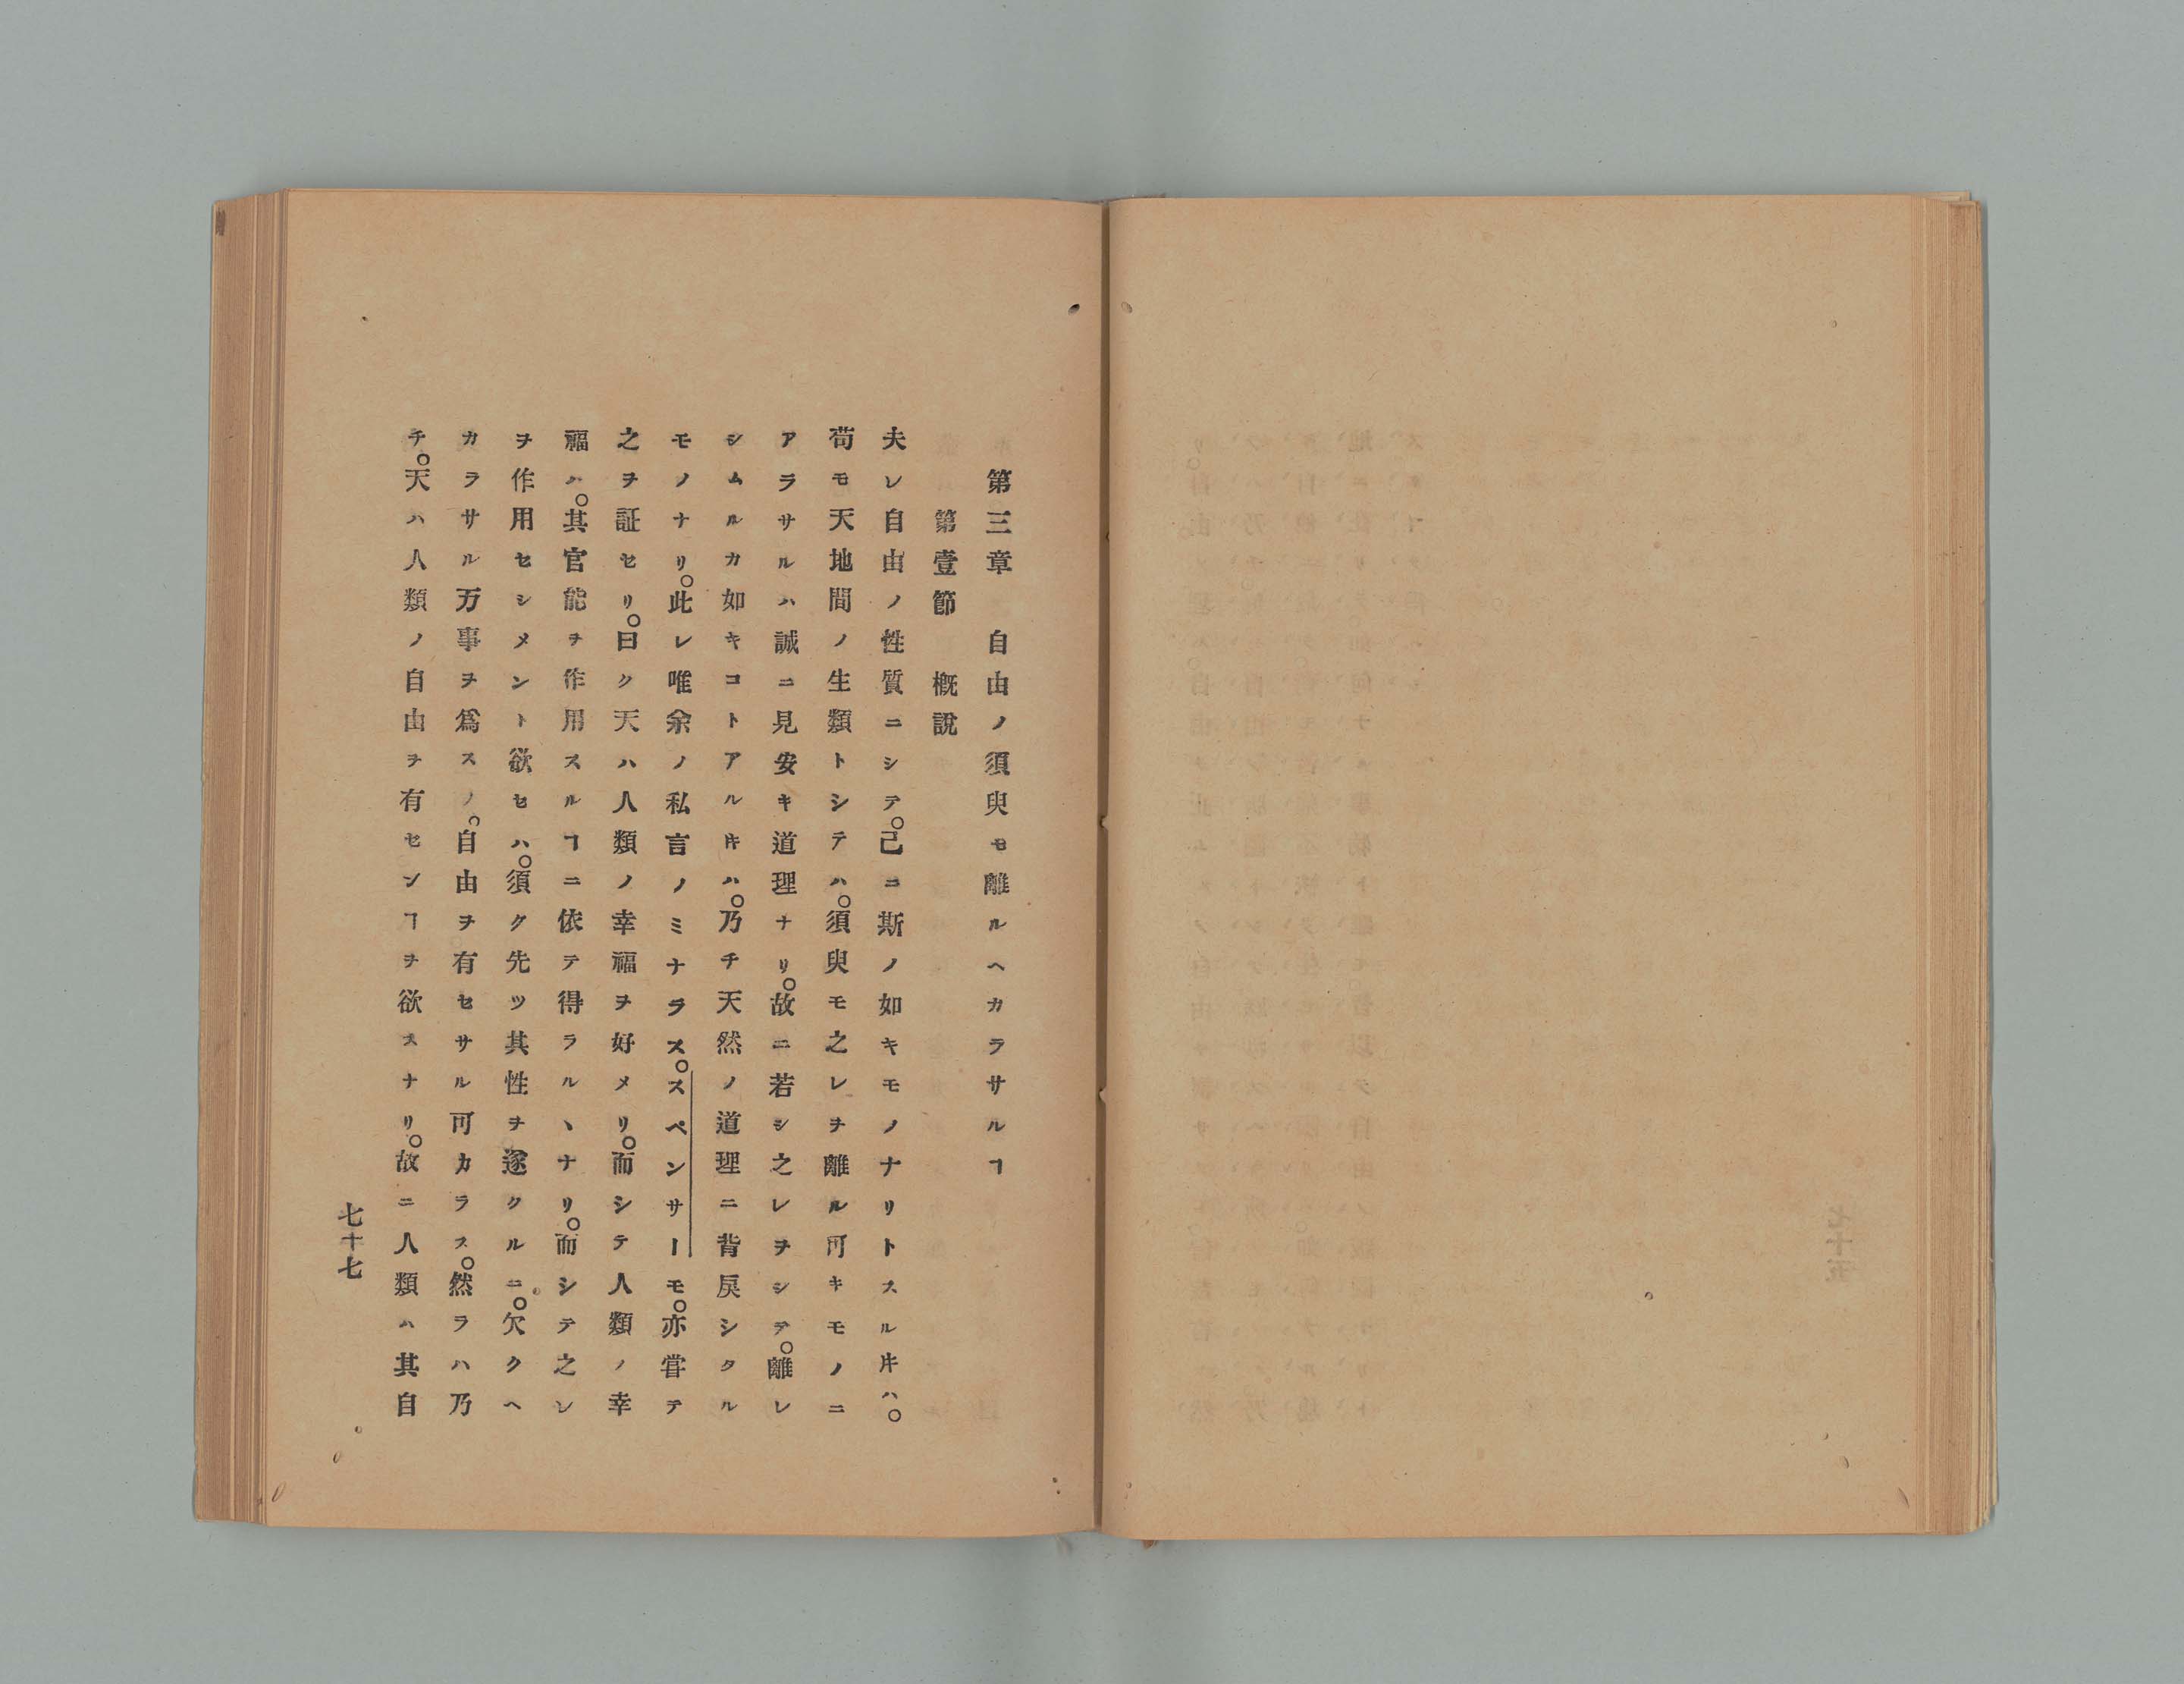 第三章　自由ノ須臾モ離ルヘカラサルヿ
第壹節　概說
夫レ自由ノ性質ニシテ。己ニ斯ノ如キモノナリトスル𪜈ハ。
苟モ天地間ノ生類トシテハ。須臾モ之レヲ離ル可キモノニ
アラサルハ誠ニ見安キ道理ナリ。故ニ若シ之レヲシテ。離レ
シムルカ如キコトアル𪜈ハ。乃チ天然ノ道理ニ背戾シクル
モノナリ。此レ唯余ノ私言ノミナラス。スペンサーモ。亦甞テ
之ヲ証セリ。曰ク天ハ人類ノ幸福ヲ好メリ。而シテ人類ノ幸
福ハ。其官能ヲ作用スルヿニ依テ得ラルヽナリ。而シテ之レ
ヲ作用セシメント欲セハ。須ク先ツ其性ヲ遂クルニ。欠クヘ
カラサル万事ヲ爲スノ。自由ヲ有セサル可カラス。然ラハ乃
チ。天ハ人類ノ自由ヲ有センヿヲ欲スナリ。故ニ人類ハ其自
七十七